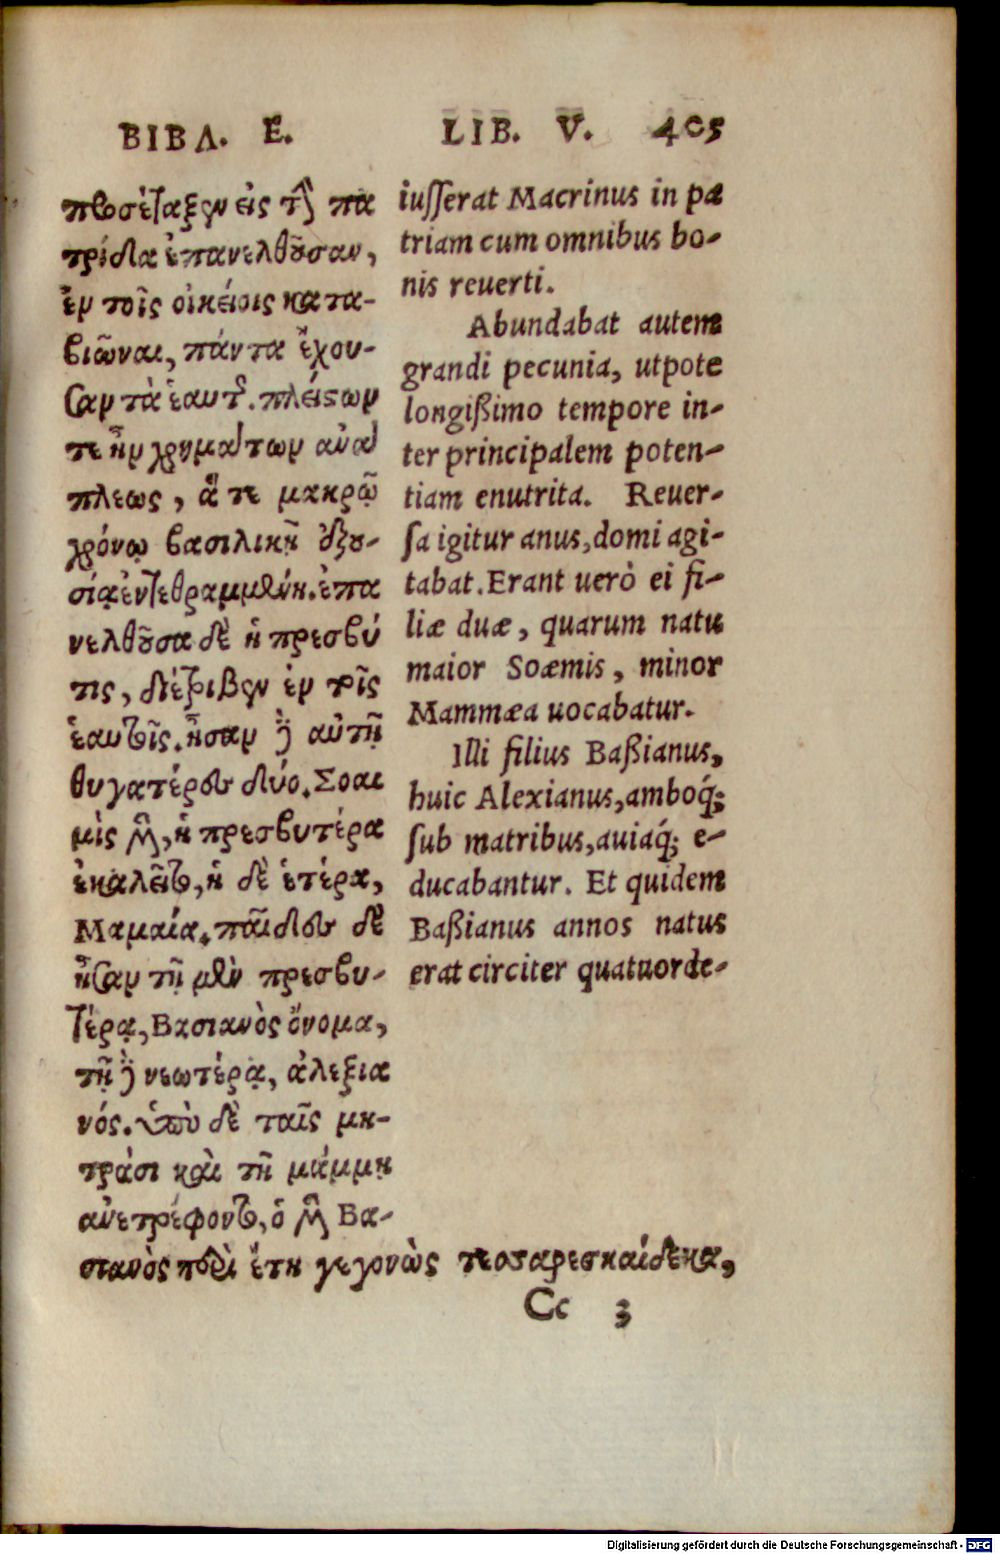 ΒΙΒΛ. Ε.
προσέταξεν εἰς τὴν πα
τρίδα ἐπανελθοῦσαν,
ἐν τοῖς οἰκείοις κατα-
βιῶναι, πάντα ἔχου-
σαν τὰ ἑαυτῆς. πλείστων
τε ἦν χρημάτων ἀνά
πλεως, ἅ τε μακρῷ
χρόνῳ βασιλικῇ ἐξου-
σίᾳ ἐντεθραμμένη. ἐπα
νελθοῦσα δὲ ἡ πρεσβύ
τις, διέτριβεν ἐν τοῖς
ἑαυτοῖς. ἦσαν δὲ αὐτῇ
θυγατέρες δύο. Σοαι
μὶς μὲν, ἡ πρεσβυτέρα
ἐκαλεῖτο, ἡ δὲ ἑτέρα,
Μαμαία. παῖδες δὲ
ἦσαν τῇ μὲν πρεσβυ-
τέρᾳ, Βασιανὸς ὄνομα,
τῇ δὲ νεωτέρᾳ, ἀλεξια
νός. ὑπὸ δὲ ταῖς μη-
τράσι καὶ τῇ μάμμῃ
ἀνετρέφοντο, ὁ μὲν Βα-
σιανὸς περὶ ἔτη γεγονὼς τεσσαρεσκαίδεκα,
LIB. V. 405
iusserat Macrinus in pa
triam cum omnibus bo-
nis reuerti.
Abundabat autem
grandi pecunia, utpote
longißimo tempore in-
ter principalem poten-
tiam enutrita. Reuer-
sa igitur anus, domi agi-
tabat. Erant uerò ei fi-
liæ duæ, quarum natu
maior Soæmis, minor
Mammæa uocabatur.
Illi filius Baßianus,
huic Alexianus, amboq́;
sub matribus, auiaq́; e-
ducabantur. Et quidem
Baßianus annos natus
erat circiter quatuorde-
Cc 3
Digitalisierung gefördert durch die Deutsche Forschungsgemeinschaft - DFG